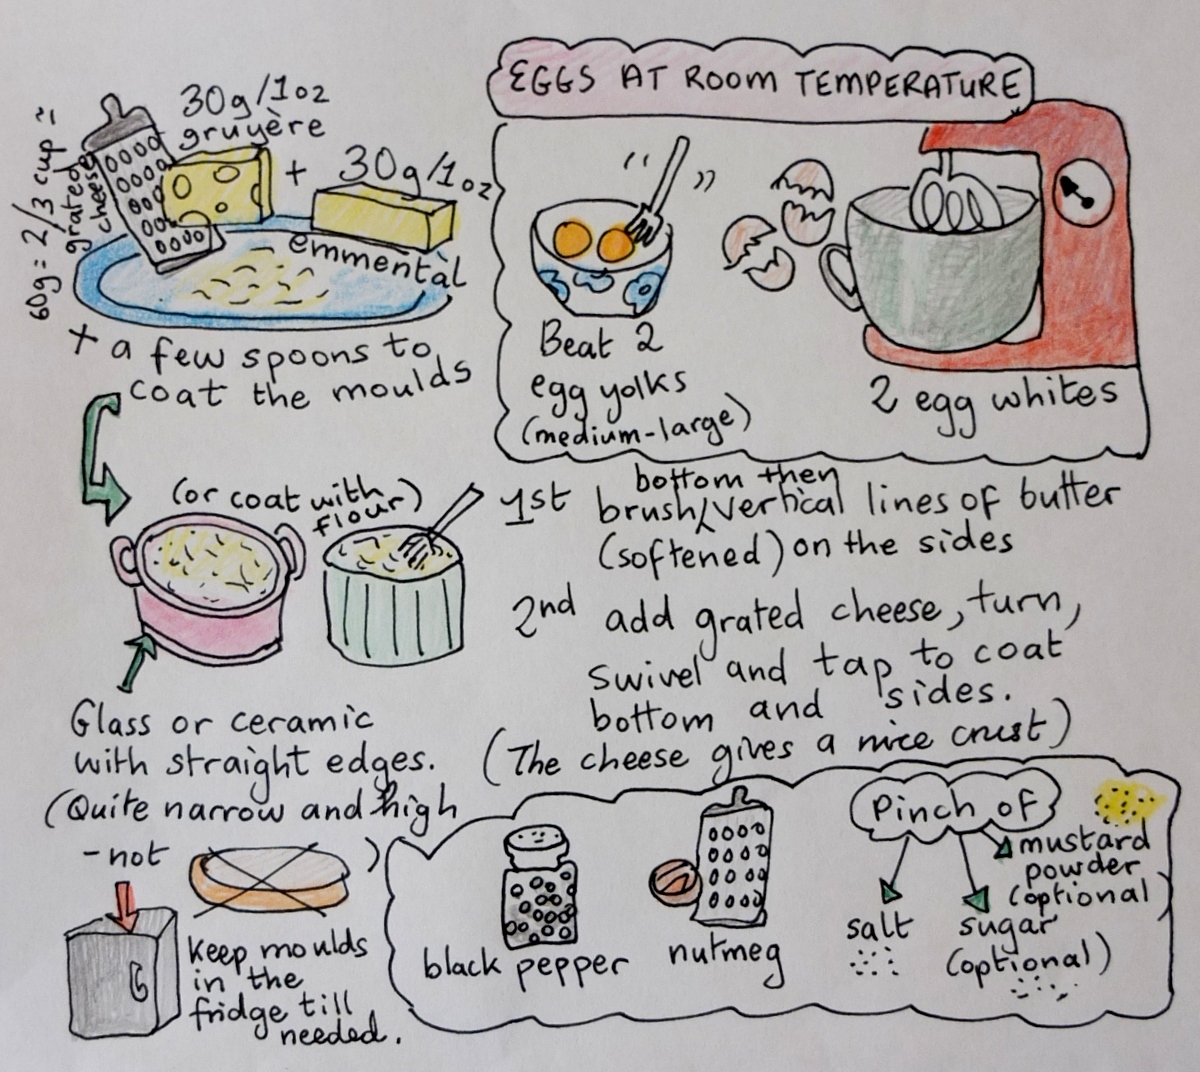 60g = 2/3 cup ≈
grated
cheese
30g/1oz
gruyère
+
30g/1oz
emmentàl
+ a few spoons to
coat the moulds
EGGS AT ROOM TEMPERATURE
Beat 2
egg yolks
(medium-large)
2 egg whites
(or coat with
flour)
1st brush/vertical lines of butter
bottom then
(softened) on the sides
2nd add grated cheese, turn,
swivel and tap to coat
bottom and sides.
(The cheese gives a nice crust)
Glass or ceramic
with straight edges.
(Quite narrow and high
- not )
Keep moulds
in the
fridge till
needed.
black pepper
nutmeg
Pinch of
salt
sugar
(optional)
mustard
powder
(optional)